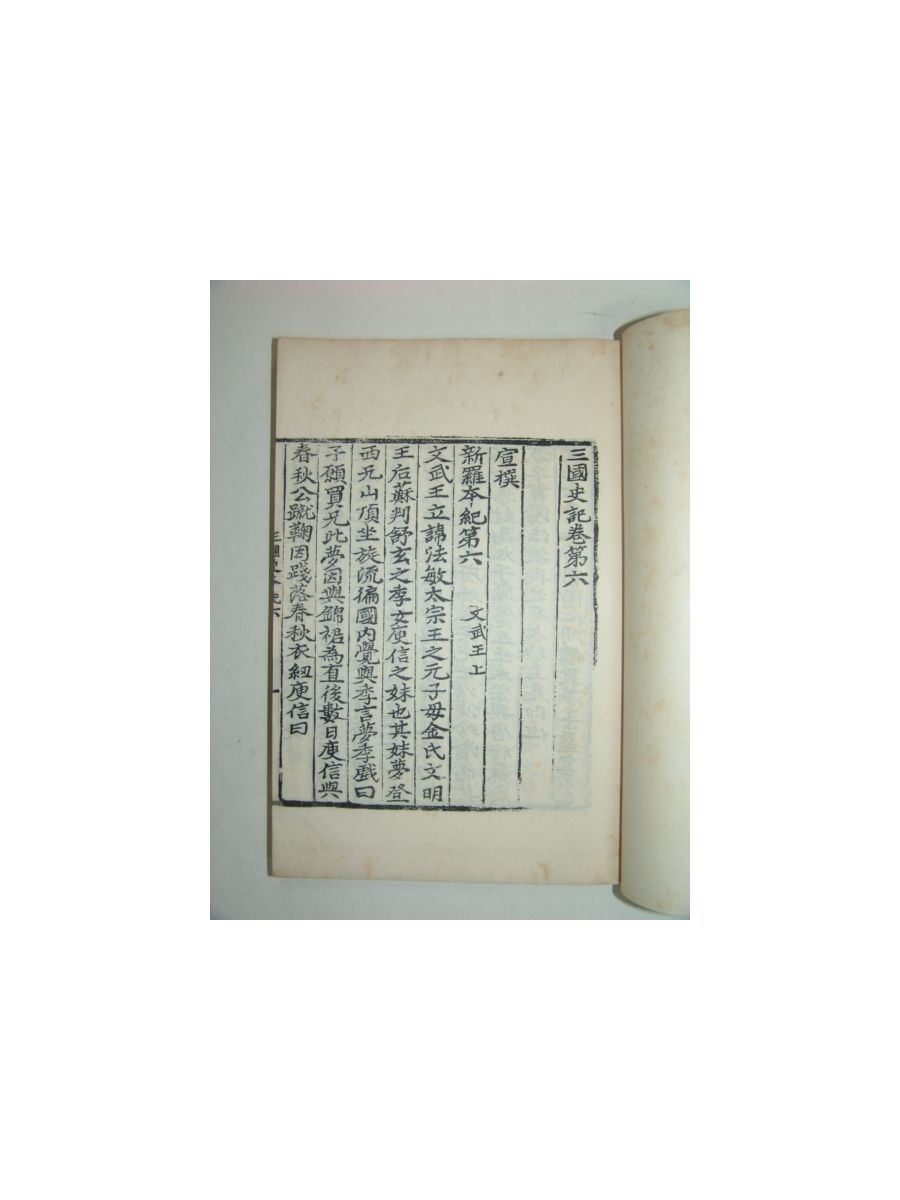 三國史記卷第六
宣撰
新羅本紀第六 文武王上
文武王立諱法敏太宗王之元子母金氏文明
王后蘇判舒玄之季女庾信之妹也其姊夢登
西兄山頂坐旋流徧國内覺與季言夢季戱曰
予願買兄此夢因與錦裙為直後數日庾信與
春秋公蹴鞠因踐落春秋衣紐庾信曰